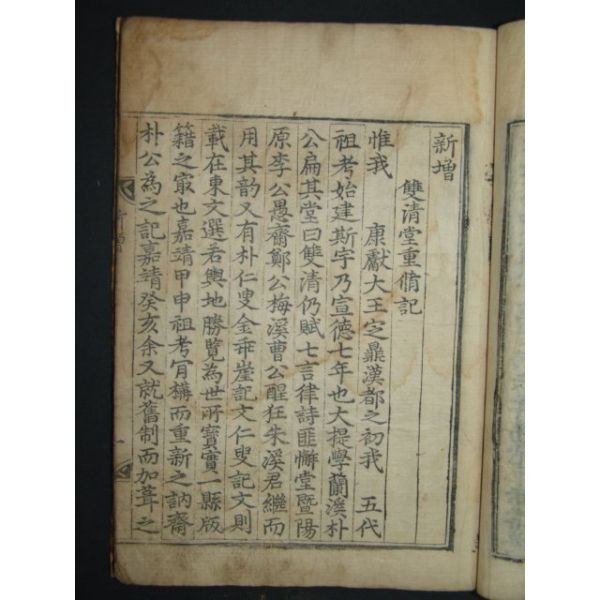 新增
雙清堂重脩記
惟我 康獻大王㝎鼎漢都之初我 五代
祖考始建斯宇乃宣德七年也大提學蘭溪朴
公扁其堂曰雙清仍賦七言律詩匪懈堂暨陽
原李公愚齋鄭公梅溪曺公醒狂朱溪君繼而
用其韵又有朴仁叟金乖崖記文仁叟記文則
載在東文選若輿地勝覽為世所寶實一縣版
籍之㝡也嘉靖甲申祖考肎構而重新之訥齋
朴公為之記嘉靖癸亥余又就舊制而加葺之